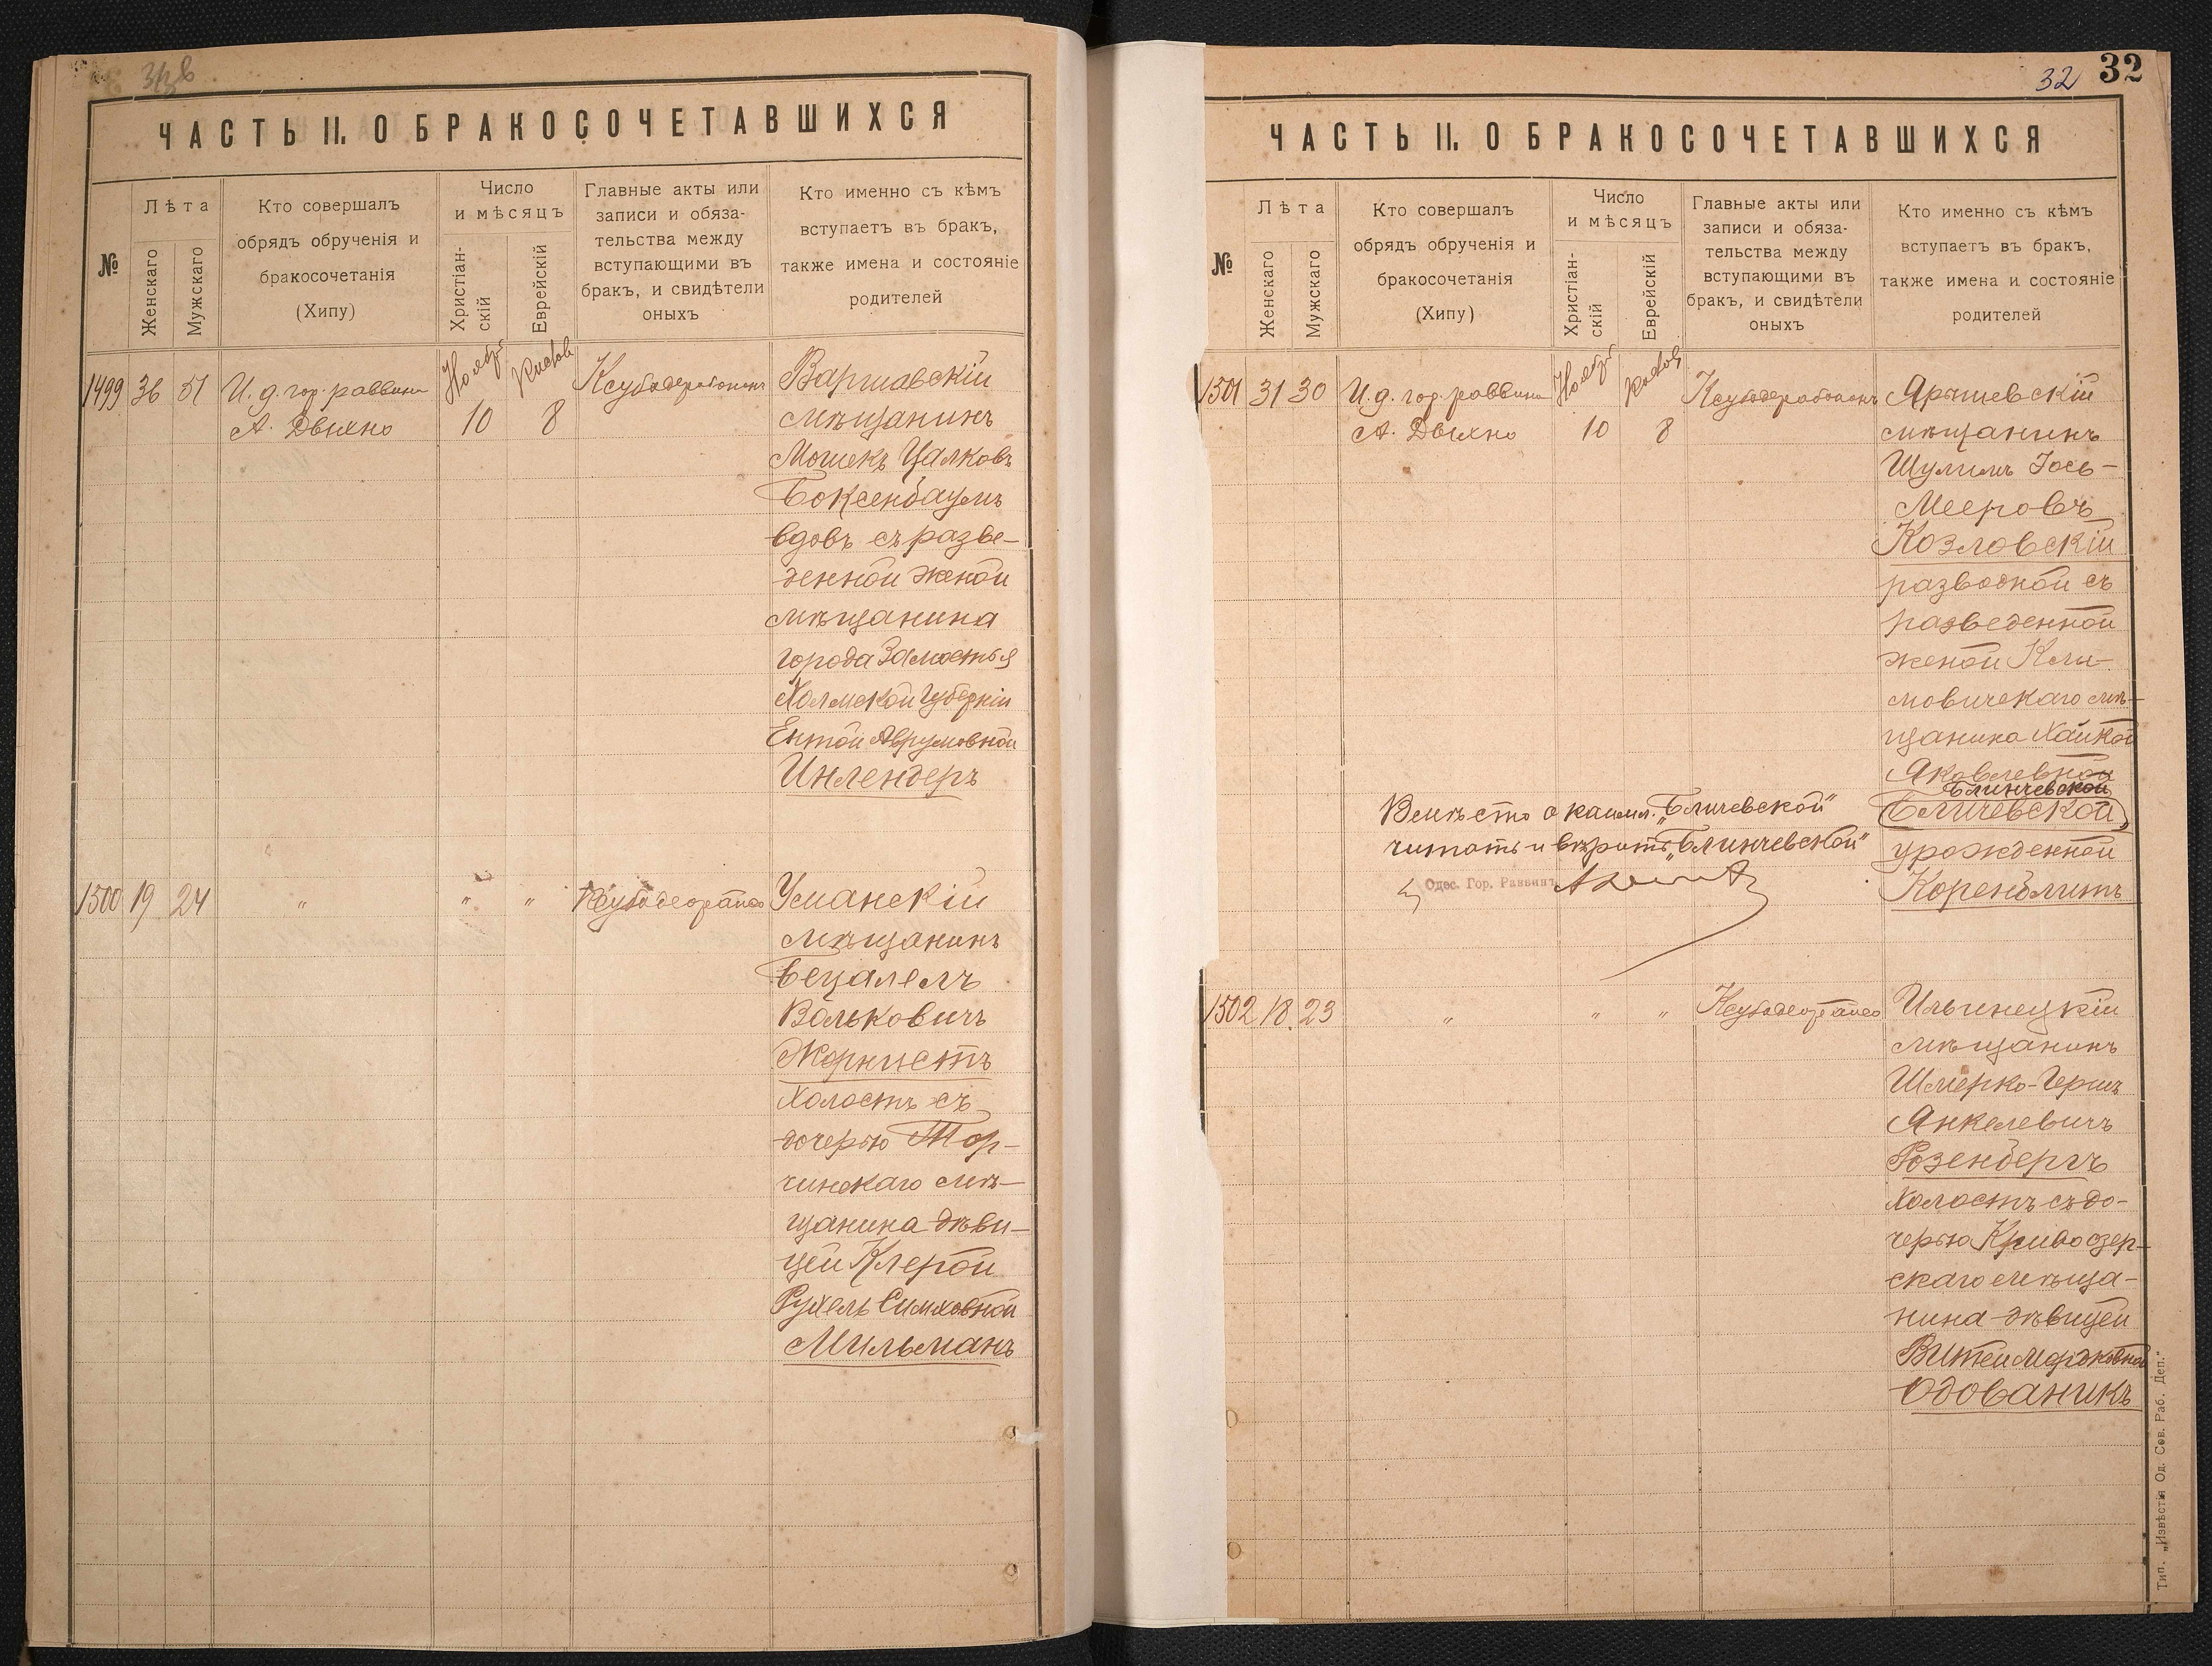 ЧАСТЬ II. О БРАКОСОЧЕТАВШИХСЯ
№
Лѣта
Женскаго
Мужскаго
Кто совершалъ
обрядъ обрученія и
бракосочетанія
(Хипу)
Число
и мѣсяцъ
Христіан-
скій
Еврейскій
Главные акты или
записи и обяза-
тельства между
вступающими въ
бракъ, и свидѣтели
оныхъ
Кто именно съ кѣмъ
вступаетъ въ бракъ,
также имена и состояніе
родителей
1499 36 51 И. д. гор. раввина
А. Двихно
Ноябрь
10
8
Варшавскій
мѣщанинъ
Мошекъ Цалковъ
Боксенбаумъ
вдовъ съ разве-
денной женой
мѣщанина
города Замостья
Холмской губерніи
Ентой Аврумовной
Инлендеръ
1500 19 24 " " "
Уманскій
мѣщанинъ
Бецалелъ
Вольковичъ
Жорнистъ
холостъ съ
дочерью Тор-
чинскаго мѣ-
щанина дѣви-
цей Клерой
Рухель Симховной
Мильманъ
32 32
ЧАСТЬ II. О БРАКОСОЧЕТАВШИХСЯ
№
Лѣта
Женскаго
Мужскаго
Кто совершалъ
обрядъ обрученія и
бракосочетанія
(Хипу)
Число
и мѣсяцъ
Христіан-
скій
Еврейскій
Главные акты или
записи и обяза-
тельства между
вступающими въ
бракъ, и свидѣтели
оныхъ
Кто именно съ кѣмъ
вступаетъ въ бракъ,
также имена и состояніе
родителей
1501 31 30 И. д. гор. раввина
А. Двихно
Ноябрь
10
8
Ярышевскій
мѣщанинъ
Шулимъ Іось-
Мееровъ
Козловскій
разводной съ
разведенной
женой Кли-
мовичскаго мѣ-
щанина Хайкой
Яковлевной
Блинчевской
Бличевской
урожденной
Коренблитъ
Вмѣсто „Бличевской"
читать и вѣрить „Блинчевской"
Одес. Гор. Раввинъ
1502 18 23 " " "
Ильинецкій
мѣщанинъ
Шмерко-Гершъ
Янкелевичъ
Розенбергъ
холостъ съ до-
черью Кривоозер-
скаго мѣща-
нина дѣвицей
Витей Мордковной
Одованикъ
Тип. „Извѣстія Од. Сов. Раб. Деп."